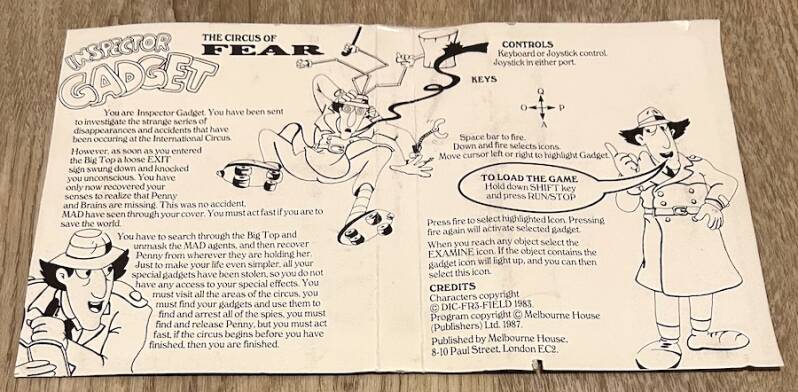 INSPECTOR
GADGET
THE CIRCUS OF
FEAR
You are Inspector Gadget. You have been sent
to investigate the strange series of
disappearances and accidents that have
been occuring at the International Circus.
However, as soon as you entered
the Big Top a loose EXIT
sign swung down and knocked
you unconscious. You have
only now recovered your
senses to realize that Penny
and Brains are missing. This was no accident.
MAD have seen through your cover. You must act fast if you are to
save the world.
You have to search through the Big Top and
unmask the MAD agents, and then recover
Penny from wherever they are holding her.
Just to make your life even simpler, all your
special gadgets have been stolen, so you do not
have any access to your special effects. You
must visit all the areas of the circus, you
must find your gadgets and use them to
find and arrest all of the spies, you must
find and release Penny, but you must act
fast, if the circus begins before you have
finished, then you are finished.
CONTROLS
Keyboard or Joystick control.
Joystick in either port.
KEYS
Q
O P
A
Space bar to fire.
Down and fire selects icons.
Move cursor left or right to highlight Gadget.
TO LOAD THE GAME
Hold down SHIFT key
and press RUN/STOP
Press fire to select highlighted Icon. Pressing
fire again will activate selected gadget.
When you reach any object select the
EXAMINE icon. If the object contains the
gadget icon will light up, and you can then
select this icon.
CREDITS
Characters copyright
© DIC-FR3-FIELD 1983.
Program copyright © Melbourne House
(Publishers) Ltd. 1987.
Published by Melbourne House,
8-10 Paul Street, London EC2.